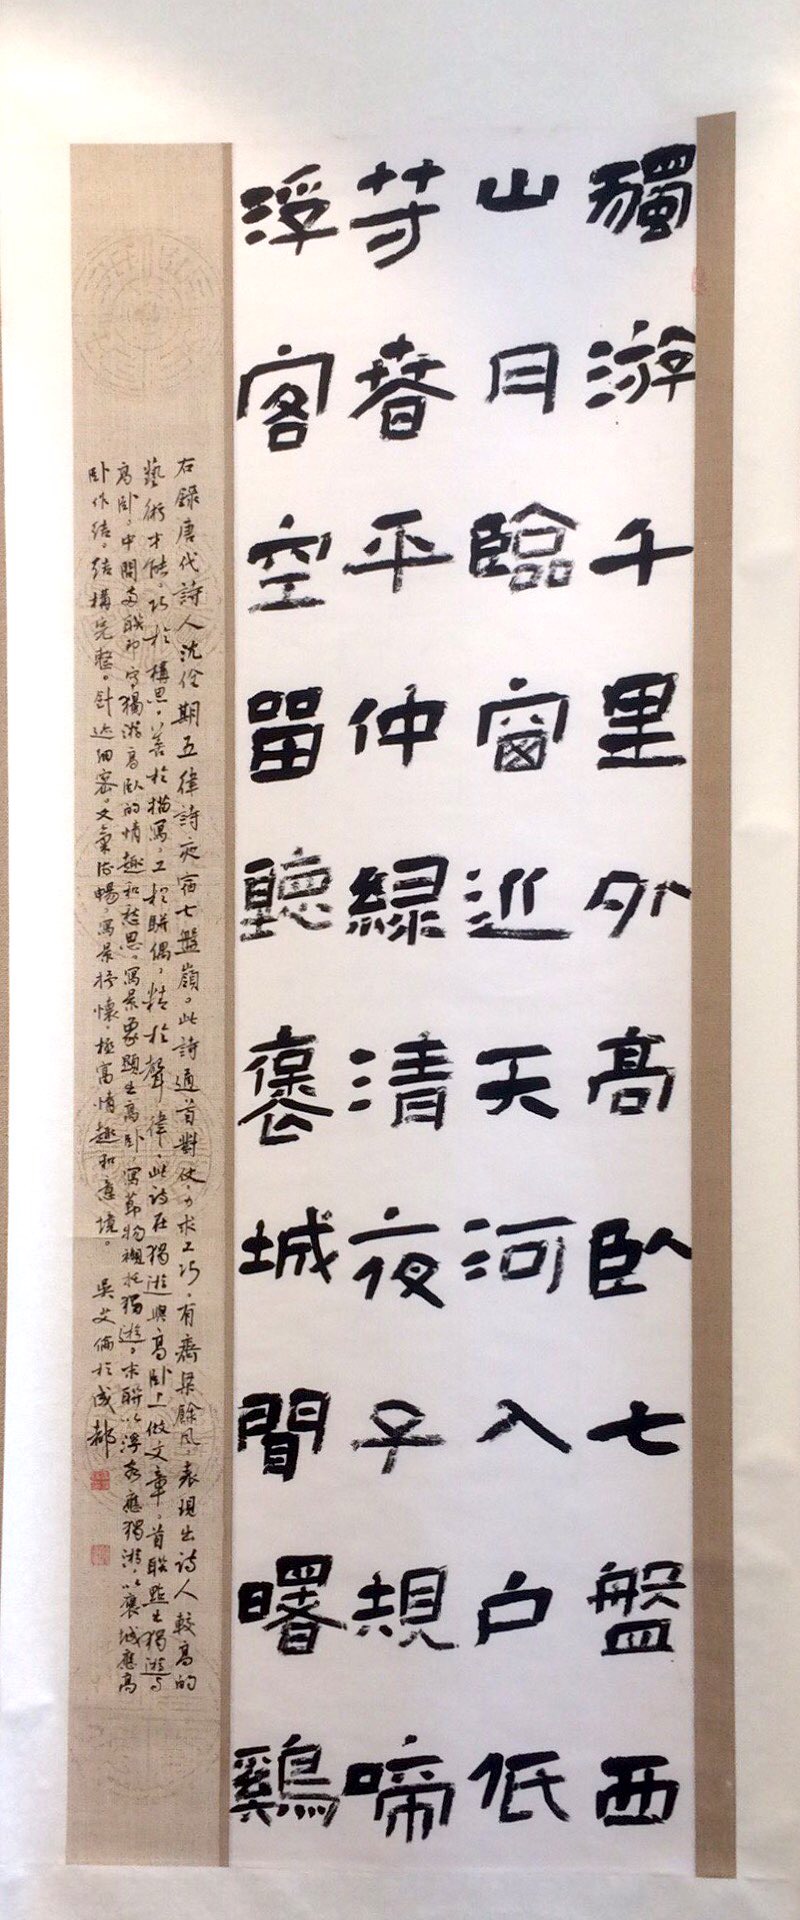 獨游千里外高臥七盤西
山月臨窗近天河入户低
芳春平仲綠清夜子規啼
浮客空留聽褒城聞曙鷄
右錄唐代詩人沈佺期五律詩夜宿七盤嶺。此詩通首對仗，力求工巧，有齊梁餘風，表現出詩人較高的
藝術才能，巧於構思，善於描寫，工於駢偶，精於聲律，此詩在獨遊與高卧上做文章，首聯點出獨遊與
高卧，中間兩聯即寫獨游高臥的情趣和愁思，寫景象顯出高卧，寫節物襯托獨遊。末聯以浮客應獨游，以褒城應高
卧作结，结構完整。針迹細密，文氣流暢，寫景抒懷，極富情趣和意境。 吳艾倫於成都